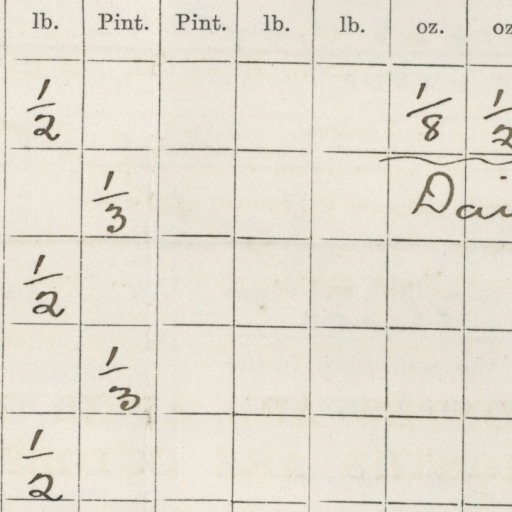 lb. Pint. Pint. lb. lb. oz. oz
1/2 1/8 1/2
1/3 Dai
1/2
1/3
1/2